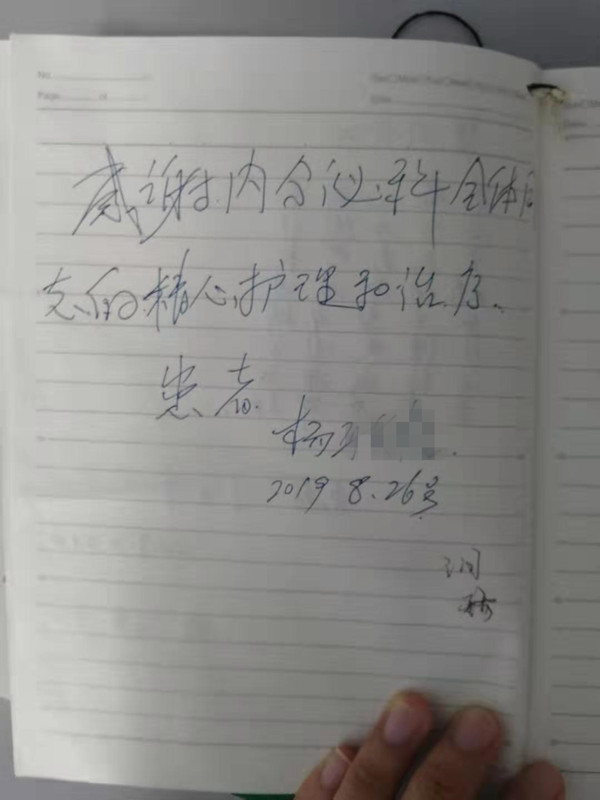 No
Page
感谢内分泌科全体同
志的精心护理和治疗.
患者.
杨
2019 8.26号